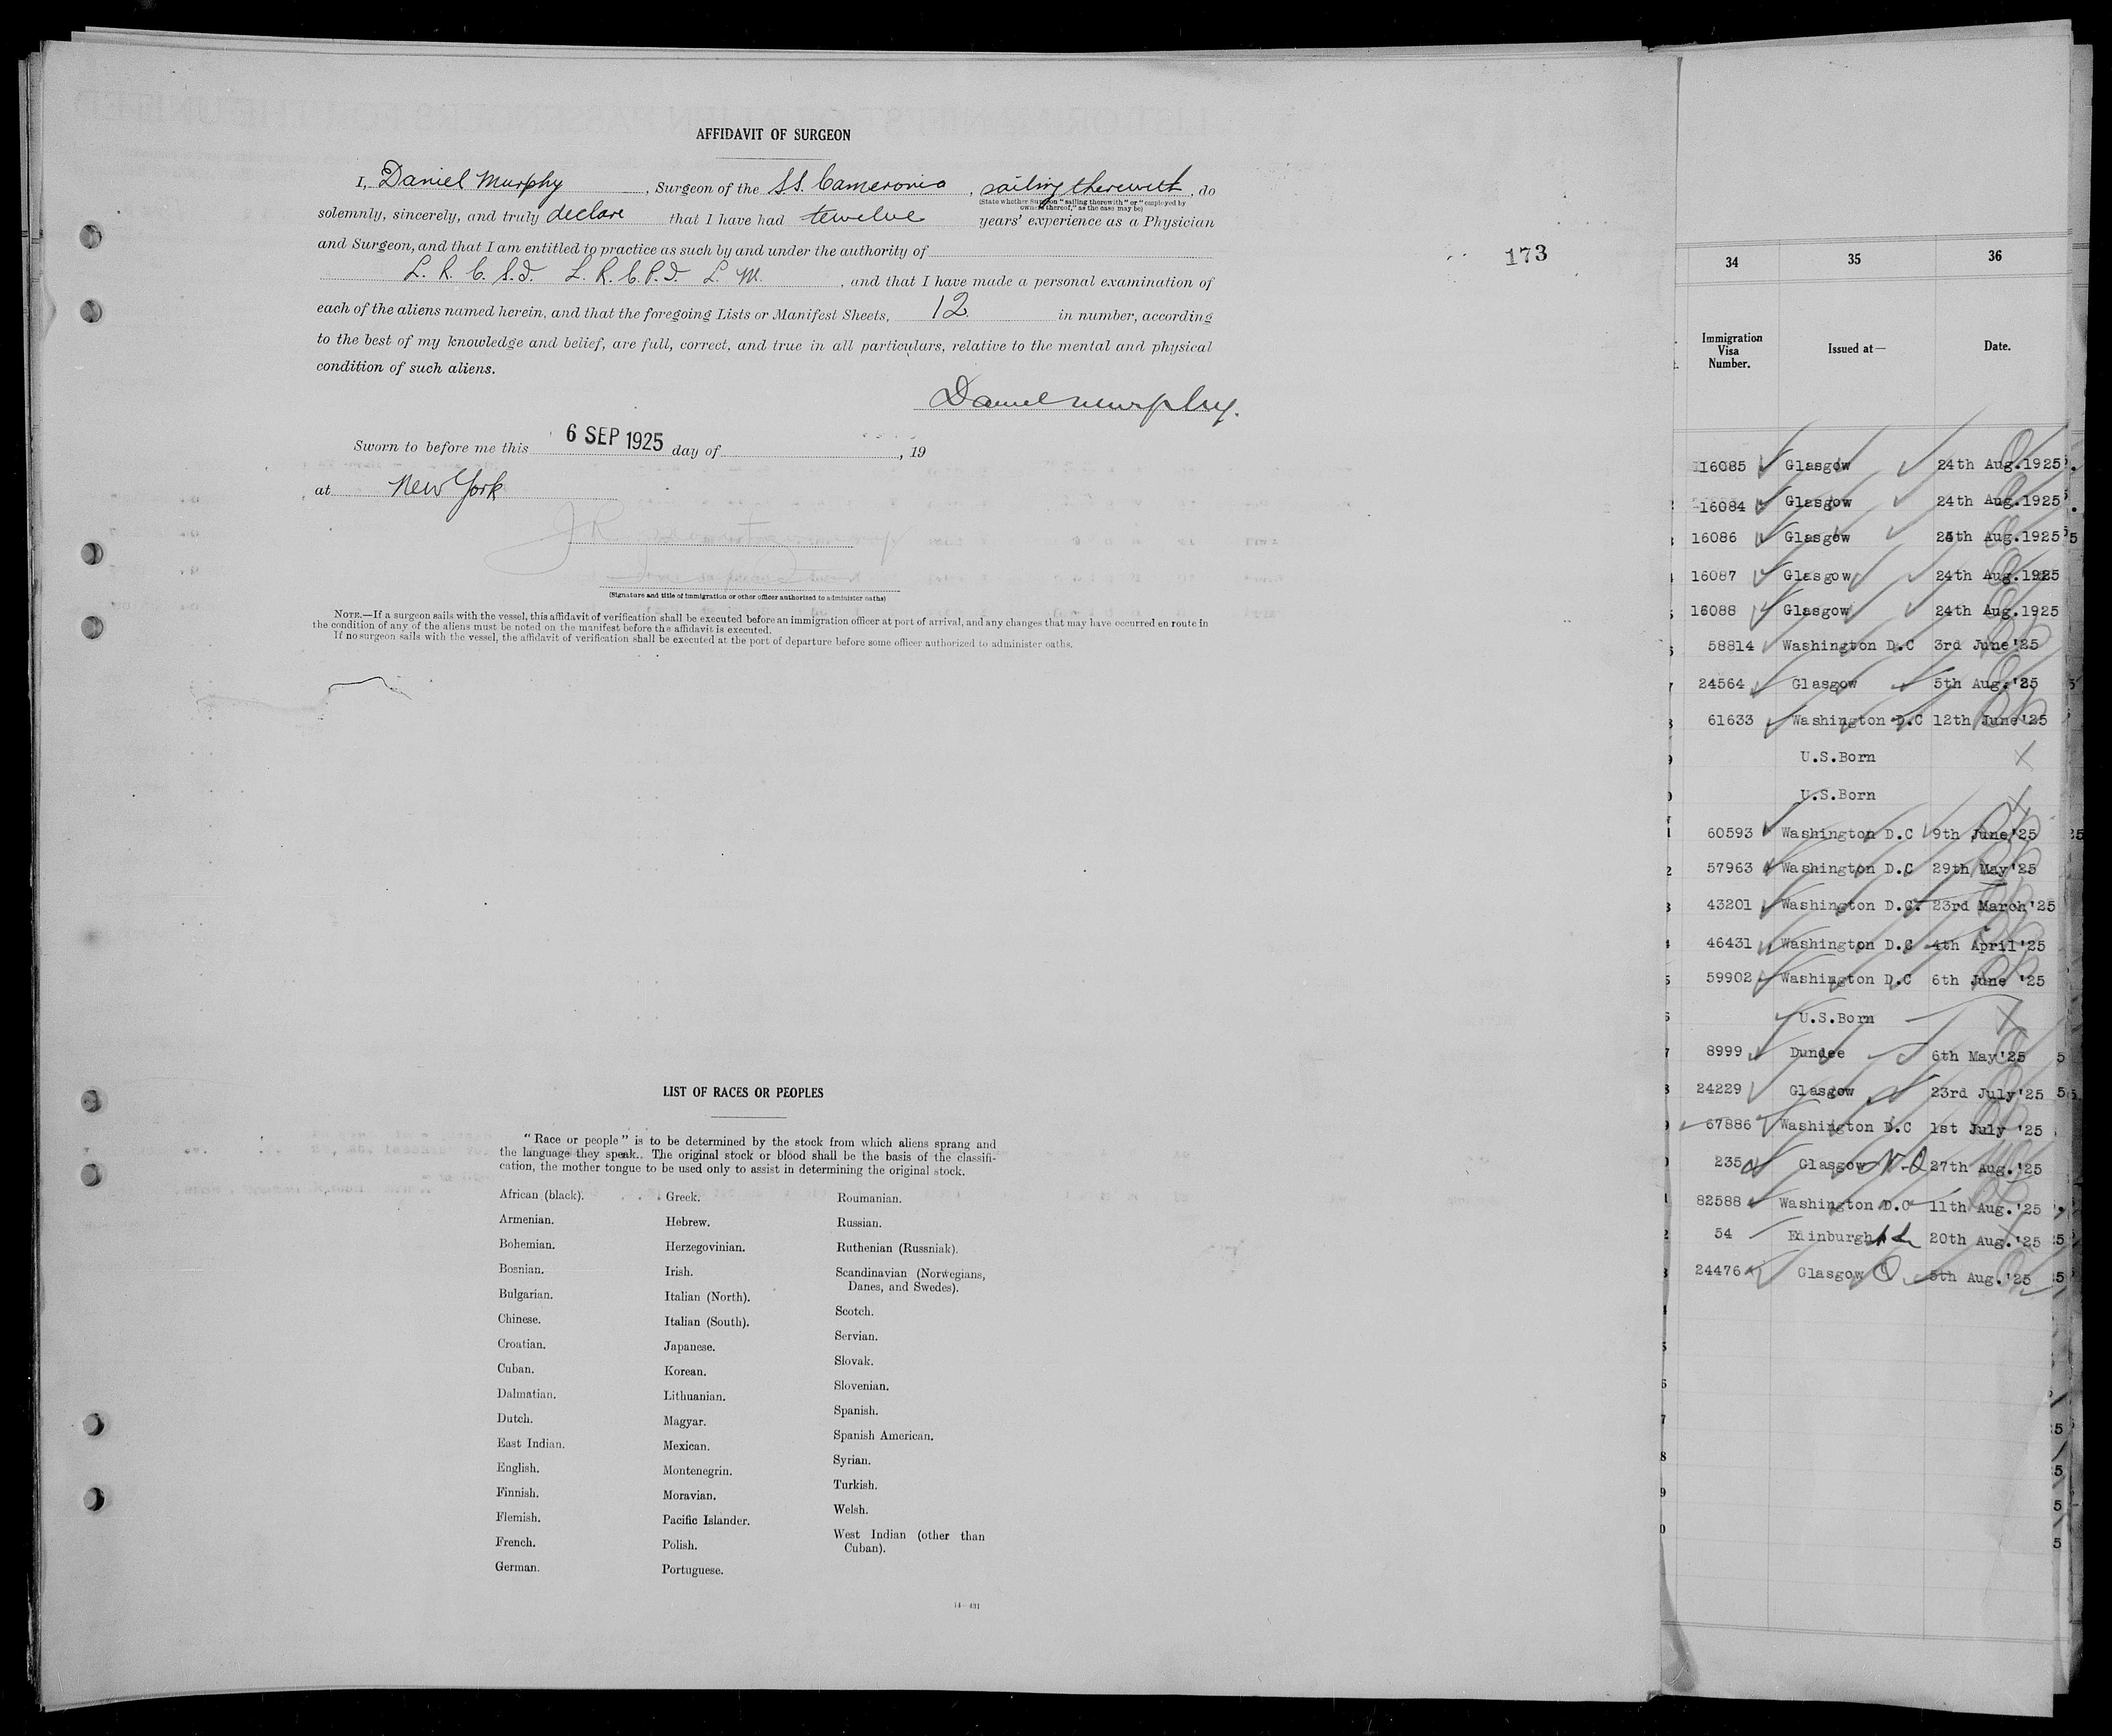 AFFIDAVIT OF SURGEON
I, Daniel Murphy, Surgeon of the S.S. Cameronia, sailing therewith, do
(State whether Surgeon "sailing therewith" or "employed by
owners thereof," as the case may be)
solemnly, sincerely, and truly declare that I have had twelve years' experience as a Physician
and Surgeon, and that I am entitled to practice as such by and under the authority of
L. R. C. S. I. L. R. C. P. I. L. M., and that I have made a personal examination of
each of the aliens named herein, and that the foregoing Lists or Manifest Sheets, 12 in number, according
to the best of my knowledge and belief, are full, correct, and true in all particulars, relative to the mental and physical
condition of such aliens.
Daniel Murphy.
Sworn to before me this 6 SEP 1925 day of , 19
at New York
(Signature and title of immigration or other officer authorized to administer oaths)
NOTE.—If a surgeon sails with the vessel, this affidavit of verification shall be executed before an immigration officer at port of arrival, and any changes that may have occurred en route in
the condition of any of the aliens must be noted on the manifest before the affidavit is executed.
If no surgeon sails with the vessel, the affidavit of verification shall be executed at the port of departure before some officer authorized to administer oaths.
173
LIST OF RACES OR PEOPLES
"Race or people" is to be determined by the stock from which aliens sprang and
the language they speak. The original stock or blood shall be the basis of the classifi-
cation, the mother tongue to be used only to assist in determining the original stock.
African (black).
Armenian.
Bohemian.
Bosnian.
Bulgarian.
Chinese.
Croatian.
Cuban.
Dalmatian.
Dutch.
East Indian.
English.
Finnish.
Flemish.
French.
German.
Greek.
Hebrew.
Herzegovinian.
Irish.
Italian (North).
Italian (South).
Japanese.
Korean.
Lithuanian.
Magyar.
Mexican.
Montenegrin.
Moravian.
Pacific Islander.
Polish.
Portuguese.
Roumanian.
Russian.
Ruthenian (Russniak).
Scandinavian (Norwegians,
Danes, and Swedes).
Scotch.
Servian.
Slovak.
Slovenian.
Spanish.
Spanish American.
Syrian.
Turkish.
Welsh.
West Indian (other than
Cuban).
14—431
34 35 36
Immigration
Visa
Number.
Issued at—
Date.
16085 Glasgow 24th Aug.1925
16084 Glasgow 24th Aug.1925
16086 Glasgow 24th Aug.1925
16087 Glasgow 24th Aug.1925
16088 Glasgow 24th Aug.1925
58814 Washington D.C 3rd June'25
24564 Glasgow 5th Aug.'25
61633 Washington D.C 12th June'25
U.S.Born
U.S.Born
60593 Washington D.C 9th June'25
57963 Washington D.C 29th May'25
43201 Washington D.C. 23rd March'25
46431 Washington D.C 4th April'25
59902 Washington D.C 6th June '25
U.S.Born
8999 Dundee 6th May'25
24229 Glasgow 23rd July'25
67886 Washington D.C 1st July '25
235 Glasgow 27th Aug.'25
82588 Washington D.C 11th Aug.'25
54 Edinburgh 20th Aug.'25
24476 Glasgow 5th Aug.'25